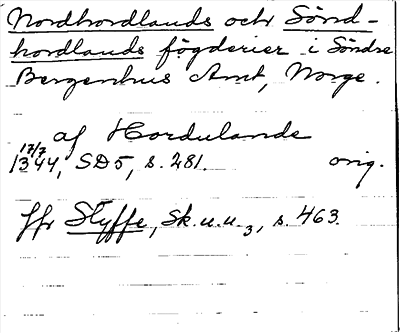 Nordhordlands och Sönd-
hordlands fögderier i Söndre
Bergenhus Amt, Norge.
af Hordulande
17/7 1344, SD5, s. 281. orig.
Jfr Styffe, Sk.u.u. 3, s. 463.